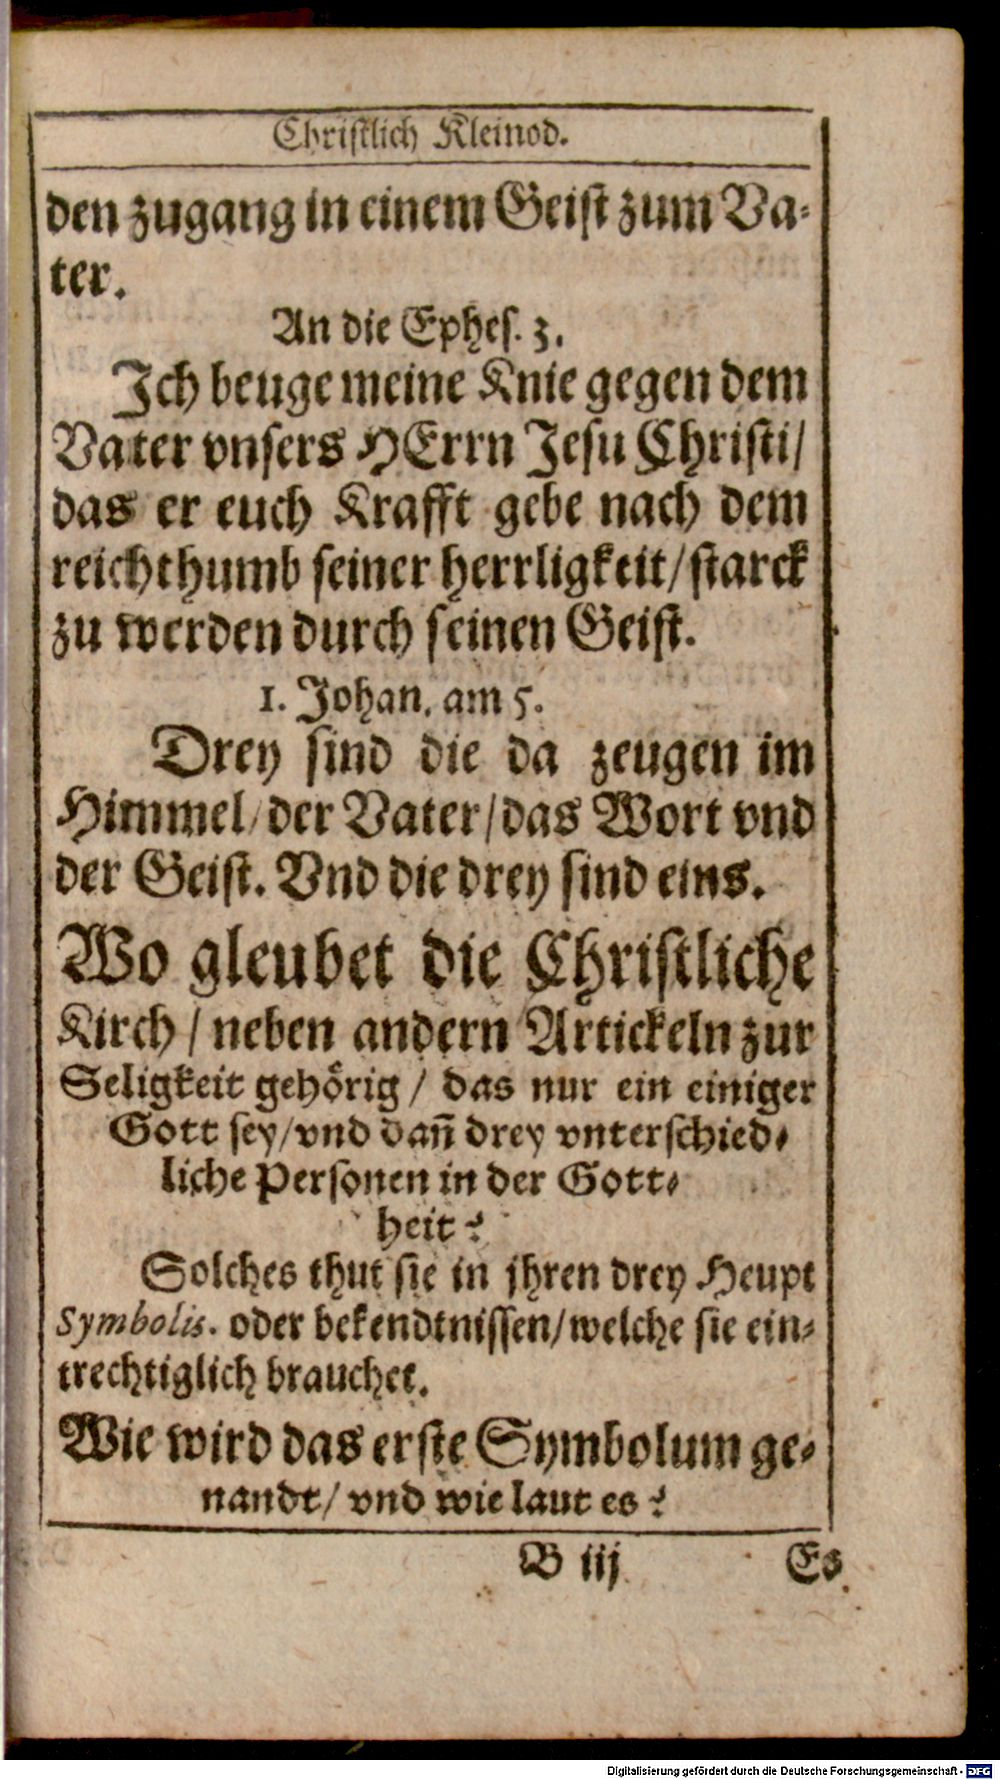 Christlich Kleinod.
den zugang in einem Geist zum Va-
ter.
An die Ephes. 3.
Ich beuge meine Knie gegen dem
Vater vnsers HErrn Jesu Christi/
das er euch Krafft gebe nach dem
reichthumb seiner herrligkeit/ starck
zu werden durch seinen Geist.
1. Johan. am 5.
Drey sind die da zeugen im
Himmel/ der Vater/ das Wort vnd
der Geist. Vnd die drey sind eins.
Wo gleubet die Christliche
Kirch/ neben andern Artickeln zur
Seligkeit gehörig/ das nur ein einiger
Gott sey/ vnd dañ drey vnterschied-
liche Personen in der Gott-
heit?
Solches thut sie in jhren drey Heupt
Symbolis. oder bekendtnissen/ welche sie ein-
trechtiglich brauchet.
Wie wird das erste Symbolum ge-
nandt/ vnd wie laut es?
B iij Es
Digitalisierung gefördert durch die Deutsche Forschungsgemeinschaft - DFG